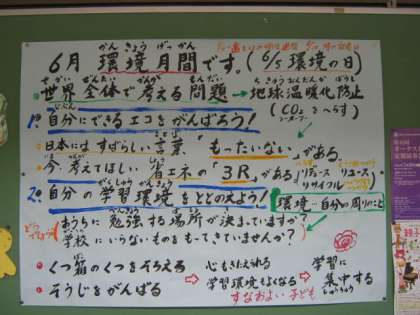 6月 環境月間です。(6/5 環境の日)
世界全体で考える問題 → 地球温暖化防止
(CO₂をへらす)
1. 自分にできるエコをがんばろう！
日本にはすばらしい言葉「もったいない」がある
今、考えてほしい省エネの「3R」がある
リデュース リユース
リサイクル
2. 自分の学習環境をととのえよう！
環境…自分の周りのこと
おうちに勉強する場所が決まっていますか？
学校にいらないものをもってきていませんか？
くつ箱のくつをそろえる
そうじをがんばる
→ 心もきたえられる
学習環境もよくなる
→ 学習に
集中する
すなおよい子ども